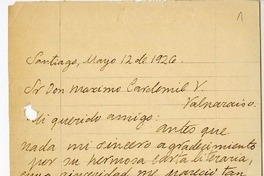 Santiago, Mayo 12 de 1926.
Sr Don Maximo Cardemil V.
Valparaiso.
Mi querido amigo:
antes que
nada mi sincero agradecimiento
por su hermosa carta literaria,
cuya sinceridad me pareció tan